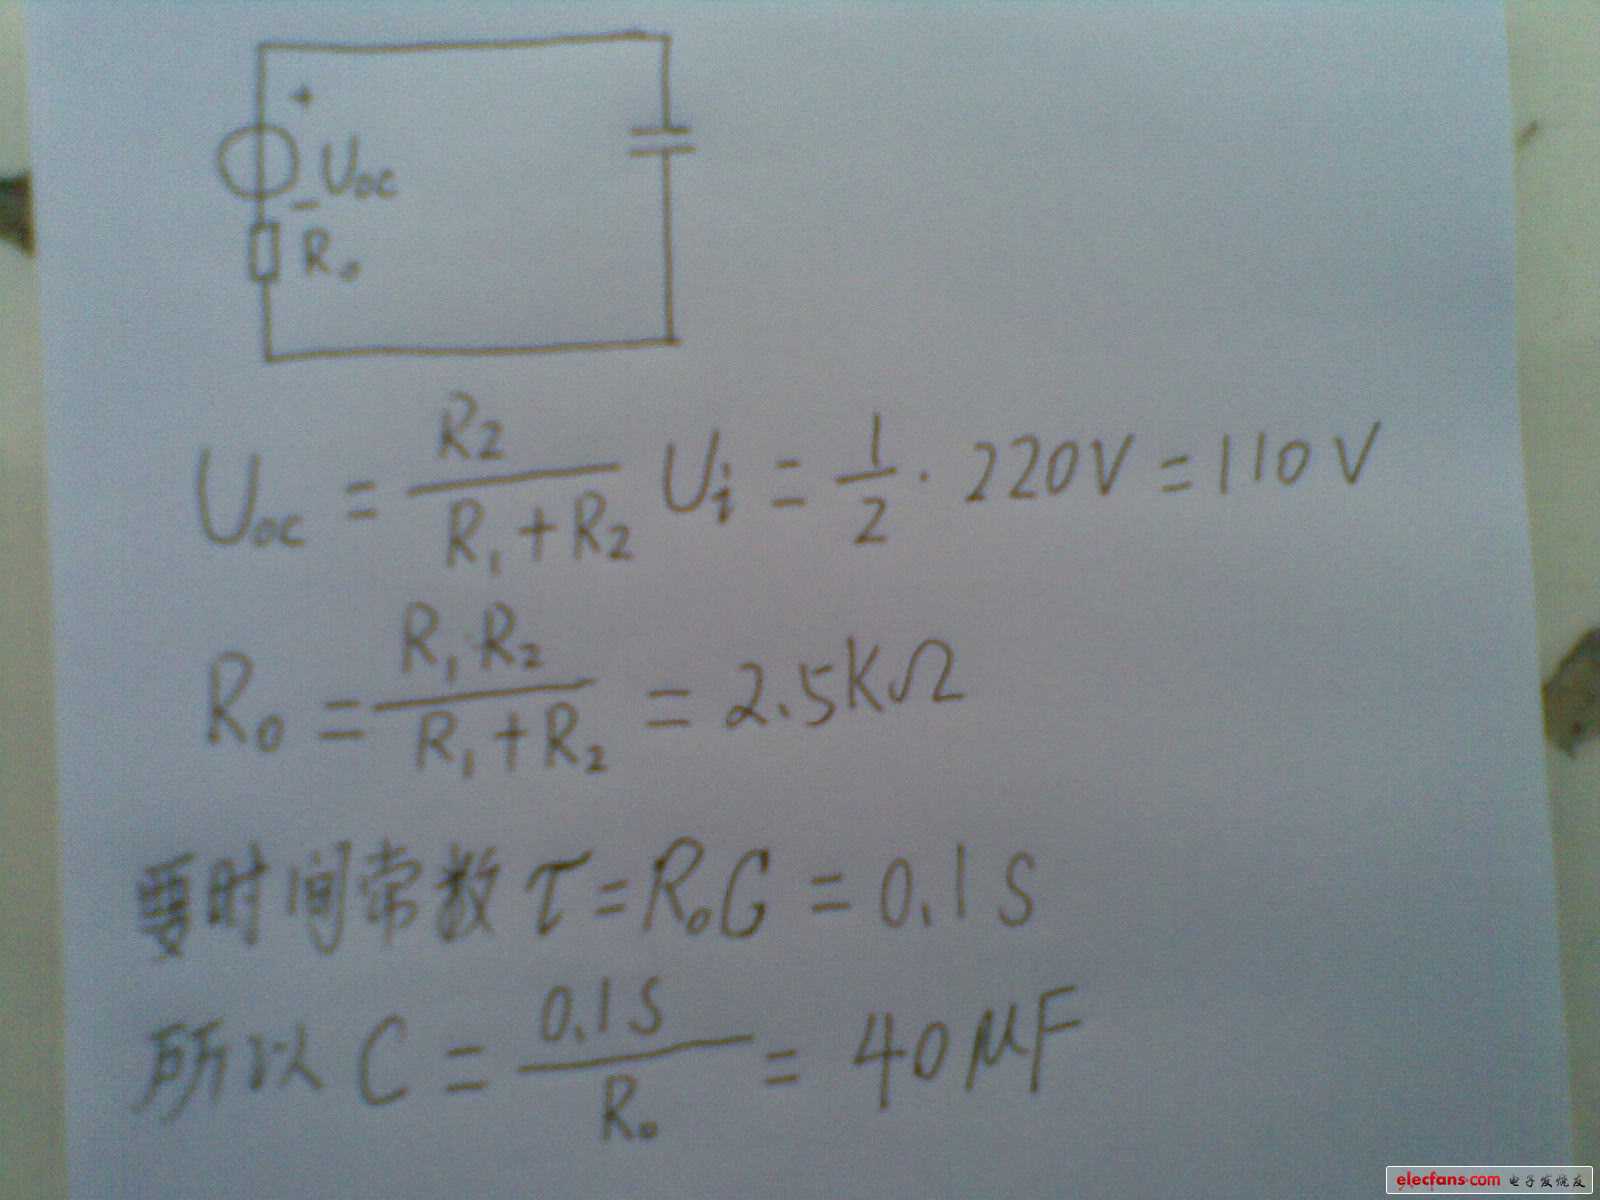 +
Uoc
−
R₀
Uoc = R2 / (R₁+R2) Ui = 1/2 · 220V = 110V
R₀ = R₁·R₂ / (R₁+R₂) = 2.5KΩ
要时间常数 τ = R₀C = 0.1S
所以 C = 0.1S / R₀ = 40μF
elecfans.com 电子发烧友